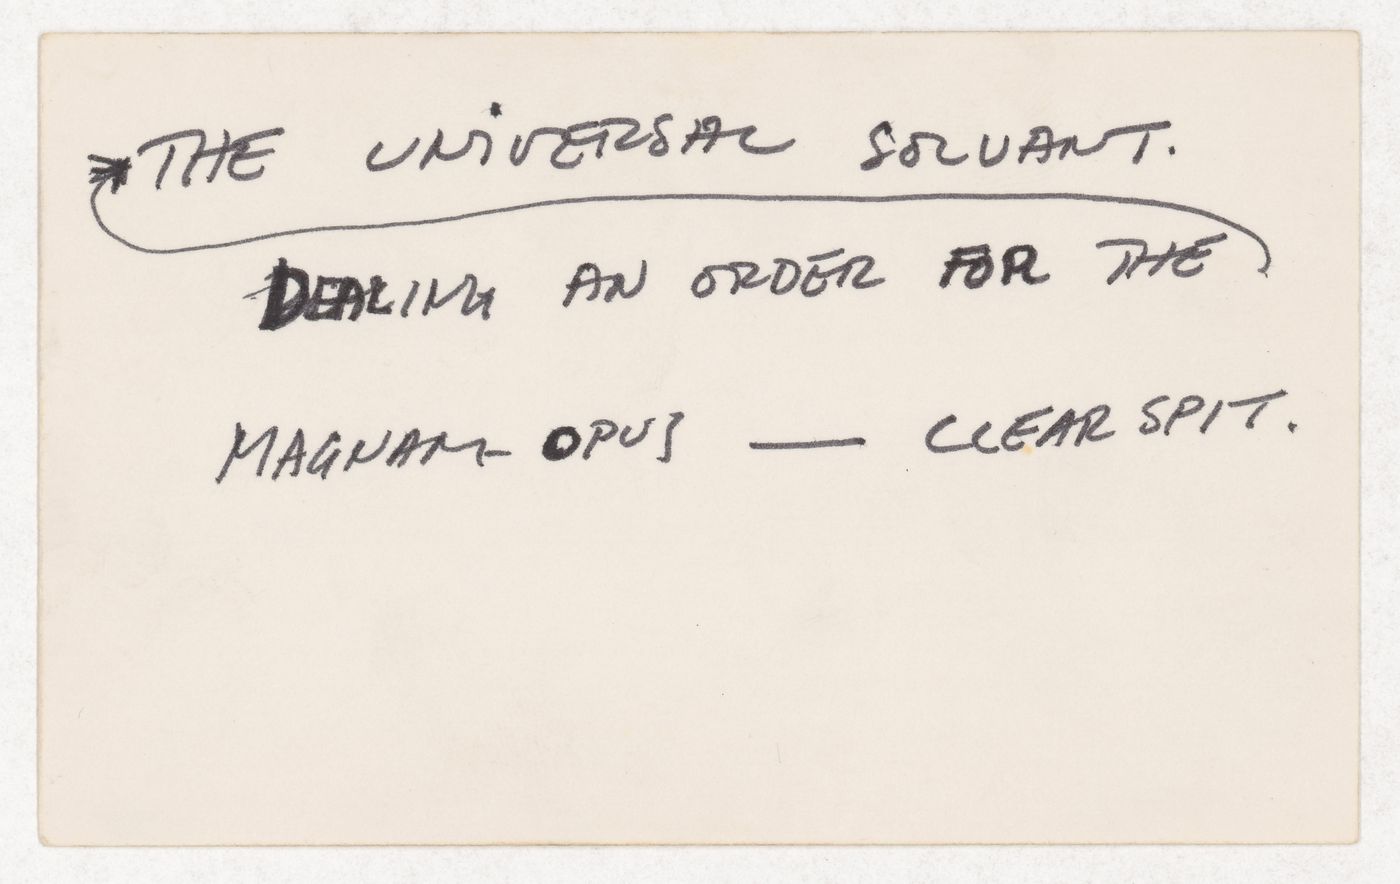 THE UNiVERSAL SOLVANT.
DEALING AN ORDER FOR THE
MAGNAM OPUS — CLEAR SPIT.